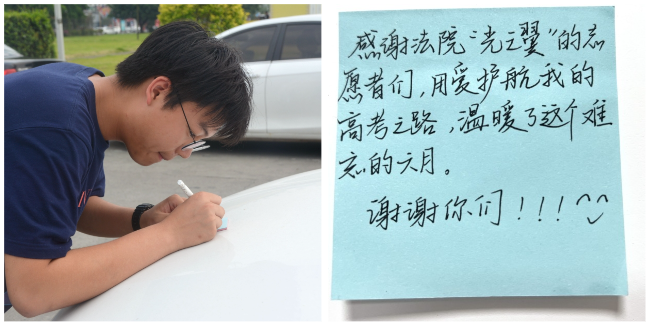 感谢法院“光之翼”的志
愿者们，用爱护航我的
高考之路，温暖了这个难
忘的六月。
谢谢你们！！！^^